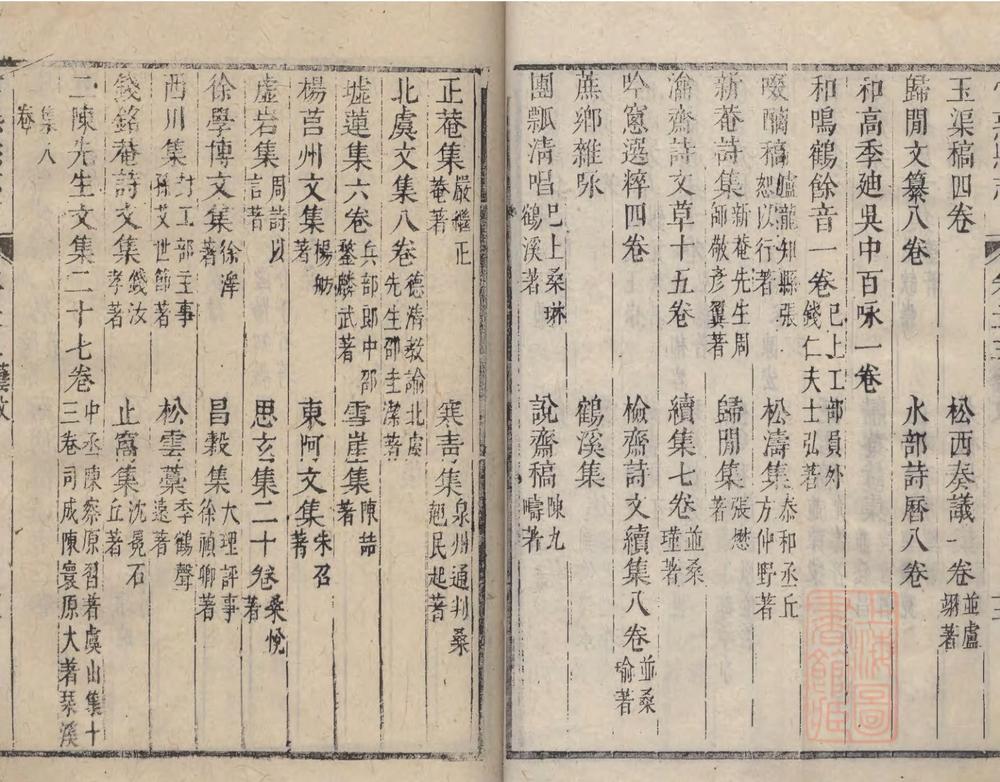 玉渠稿四卷　松西奏議一卷並盧翊著
歸閒文纂八卷　水部詩曆八卷
和高季廸吳中百咏一卷
和鳴鶴餘音一卷已上工部員外錢仁夫士弘著
嘐醨稿艫龍知縣張恕以行著　松濤集泰和丞丘方仲野著
新菴詩集新菴先生周師敬彦翼著　歸閒集張懋著
瀹齋詩文草十五卷　續集七卷並桑瑾著
吟窻選粹四卷　檢齋詩文續集八卷並桑瑜著
蔗鄉雜咏　鶴溪集
團瓢清唱已上桑琳鶴溪著　說齋稿陳九疇著
正菴集嚴繼正菴著　寒青集泉州通判桑翹民起著
北虞文集八卷德清教諭北虞先生邵圭潔著
墟蓮集六卷兵部郎中邵鏊麟武著　雪崖集陳喆著
楊莒州文集楊舫著　東阿文集朱召著
虚岩集周詩以言著　思玄集二十卷桑悅著
徐學博文集徐滓著　昌穀集大理評事徐禎卿著
西川集封工部主事孫艾世節著　松雲藁季鶴聲遠著
錢銘菴詩文集錢汝孝著　止窩集沈冕石丘著
二陳先生文集二十七卷中丞陳察原習著虞山集十三卷司成陳寰原大著琴溪
集八
卷